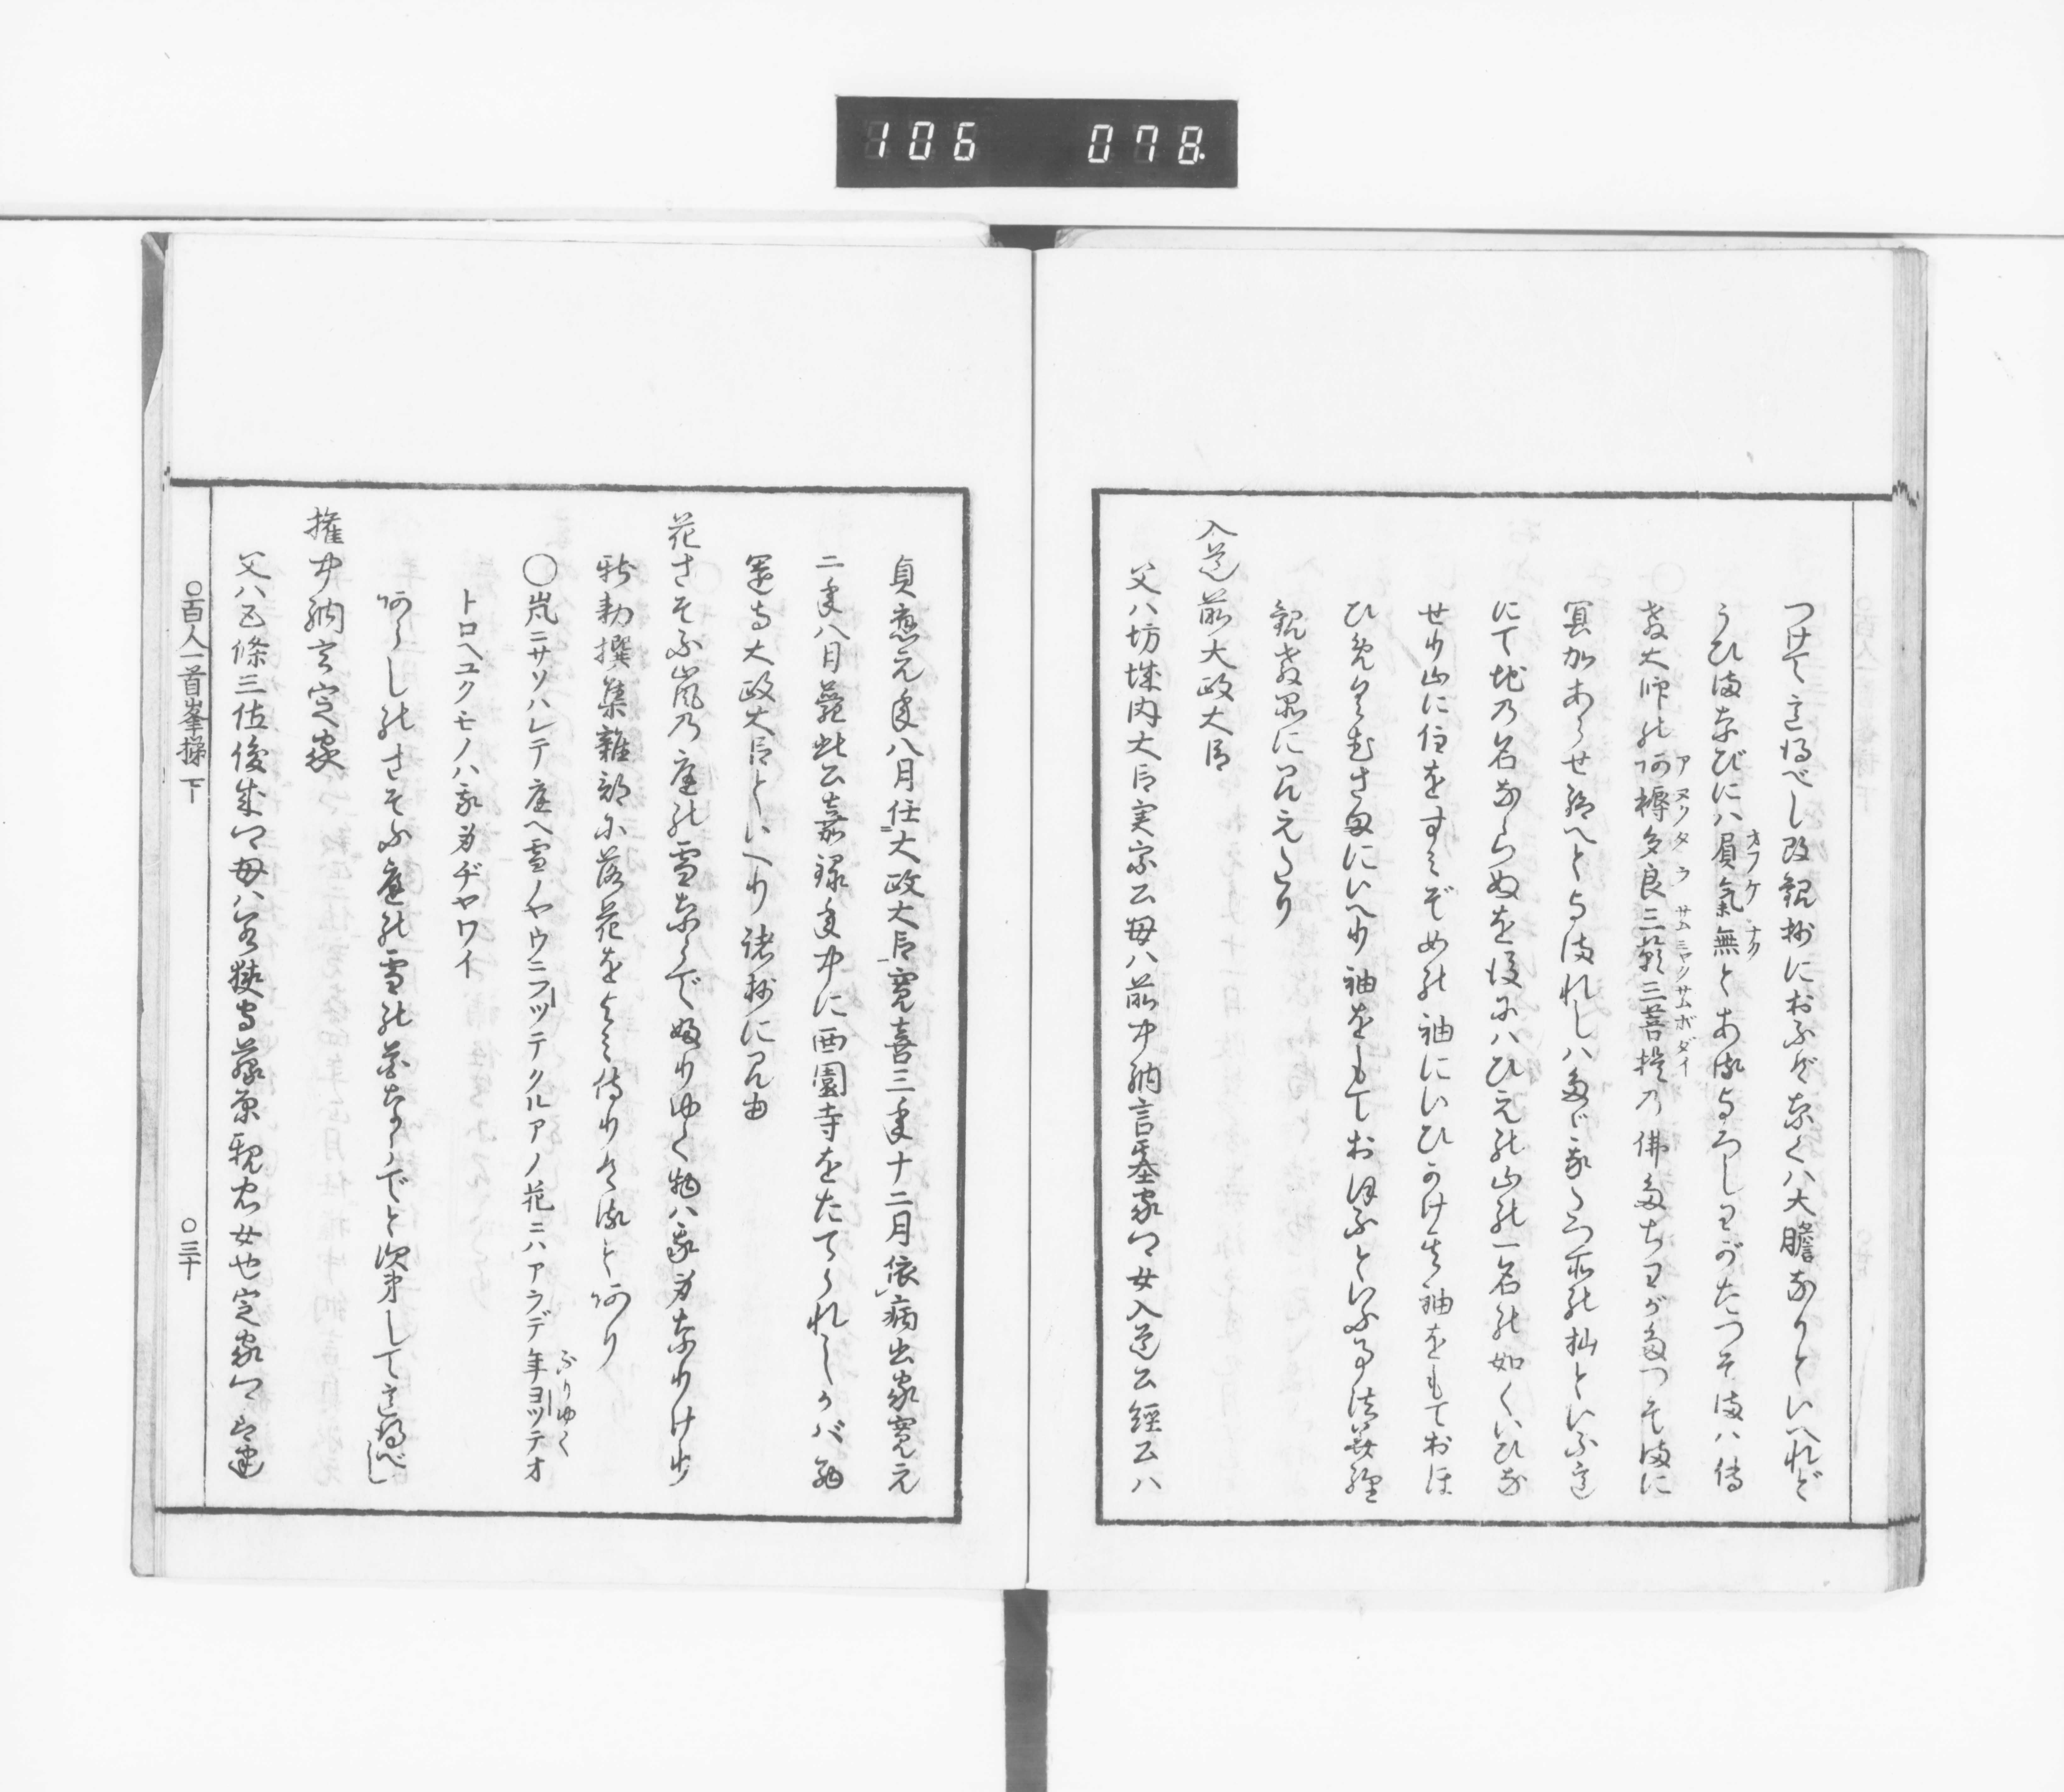 106 078
つけて意得べし改観抄におふけなくハ大膽なりといへれど
うひまなびにハ屓氣無とあるよろしわがたつそまハ傳
オフケナク
教大師の阿耨多良三藐三菩提の佛たちわがたつそまに
アヌクタラ サムミャクサムボダイ
冥加あらせ給へとよまれしハたゞ我たつ所の杣といふ意
にて地の名ならぬを後にハひえの山の一名の如くいひな
せり山に住をすみぞめの袖にいひかけ其袖をもておほ
ひ
袖をもておほふといふ事法華經
観音品に見えたり
入道前太政大臣
父ハ坊城内大臣実宗公母ハ前中納言基家卿女入道公經公ハ
貞應元年八月任大政大臣寛喜三年十二月依病出家寛元
二年八月薨此公嘉禄年中に西園寺をたてられしかバ
寺大政大臣といへり諸抄に見ゆ
花さそふ嵐の庭の雪ならでふりゆく物ハ我身なりけり
新勅撰集雑部に落花をよみ侍りけるとあり
〇嵐ニサソハレテ庭ヘ雪ノヤウニフッテクルアノ花ニハアラデ年ヨッテオ
ふりゆく
トロヘユクモノハ我身ヂヤワイ
あらしのさそふ庭の雪の花ならでと次第して意得べし
権中納言定家
父ハ五條三位俊成卿母ハ若狭守藤原親忠女也定家卿
〇百人一首峯梯 下
〇三十